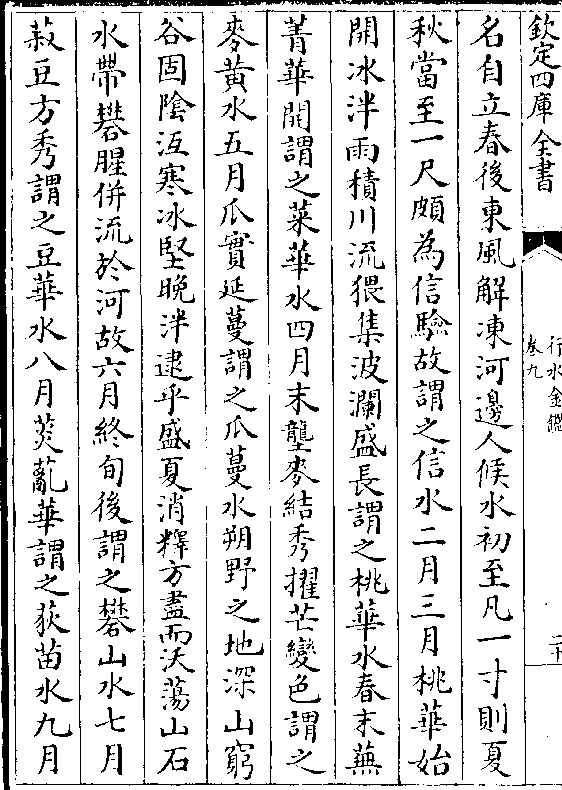 欽定四庫全書
行水金鑑
卷九
二十
名自立春後東風解凍河邊人候水初至凡一寸則夏
秋當至一尺頗為信驗故謂之信水二月三月桃華始
開冰泮雨積川流猥集波瀾盛長謂之桃華水春末蕪
菁華開謂之菜華水四月末壟麥結秀擢芒變色謂之
麥黃水五月瓜實延蔓謂之瓜蔓水朔野之地深山窮
谷固陰沍寒冰堅晚泮逮乎盛夏消釋方盡而沃蕩山石
水帶礬腥併流於河故六月終旬後謂之礬山水七月
菽豆方秀謂之豆華水八月菼薍華謂之荻苗水九月